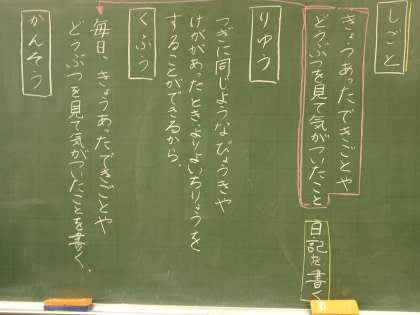 しごと
きょうあったできごとや
どうぶつを見て気がついたこと
日記を書く
りゆう
つぎに同じようなびょうきや
けががあったときよりよいちりょうを
することができるから。
くふう
毎日、きょうあったできごとや
どうぶつを見て気がついたことを書く。
かんそう